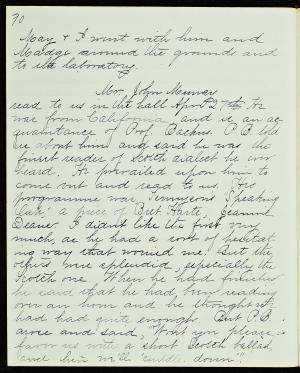 70
May & I went with him and
Madge around the grounds and
to the laboratory.
Mr. John Murray
read to us in the hall Apr. 27th. He
was from California and is an ac-
quaintance of Prof. Backus. P. B. told
us about him and said he was the
finest reader of Scotch dialect he ever
heard. He prevailed upon him to
come out and read to us. His
programme was, Tennyson's "Speaking
Oak," a piece of Bret Harte, "Jeannie
Deans." I didn't like the first very
much, as he had a sort of hesitat-
ing way that worried me. But the
others were splendid, especially the
Scotch one. When he had finished
he said that he had been reading
over an hour and he thought we
had had quite enough. But P. B.
arose and said, "Won't you please
favor us with a short Scotch ballad,
and then we'll 'cuddle down'."